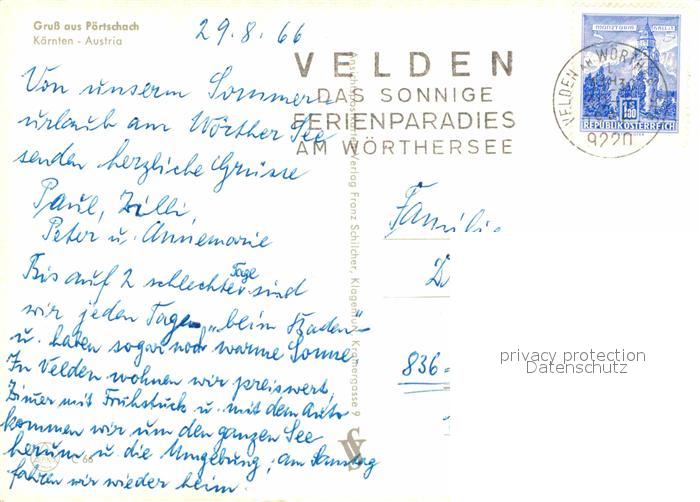 Gruß aus Pörtschach
Kärnten - Austria
29.8.66
Von unserem Sommer
urlaub am Wörther See
senden herzliche Grüsse
Paul, Zilli
Peter u. Annemarie
Bis auf 2 schlechte Tage sind
wir jeden Tag „beim Baden"
u. haben sogar noch warme Sonne
In Velden wohnen wir preiswert,
Zimer mit Frühstück u. mit dem Auto
kommen wir um den ganzen See
herum u. die Umgebung; am Samstag
fahren wir wieder heim.
C 66
VELDEN
DAS SONNIGE
FERIENPARADIES
AM WÖRTHERSEE
VELDEN AM WÖRTH
9220
MÜNZTURM HALL i. T.
1.80
REPUBLIK ÖSTERREICH
Verlag Franz Schilcher, Klagenfurt, Kramergasse 9
Familie
836
privacy protection
Datenschutz